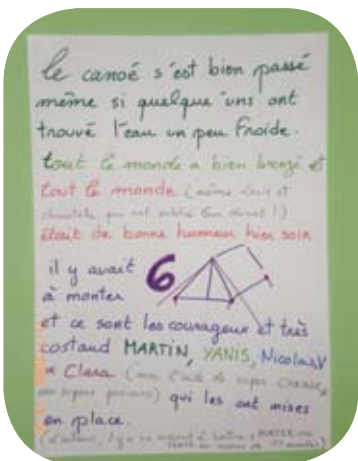 le canoé s'est bien passé
même si quelque'uns ont
trouvé l'eau un peu froide.
tout le monde a bien bronzé et
tout le monde (même et
qui ont oublié leur !)
était de bonne humeur hier soir
il y avait 6
à monter
et ce sont les courageux et très
costaud MARTIN, YANIS, Nicolas V
a Clara (avec l'aide de super
) qui les ont mises
en place.
(d'ailleurs, il y a un record à battre :